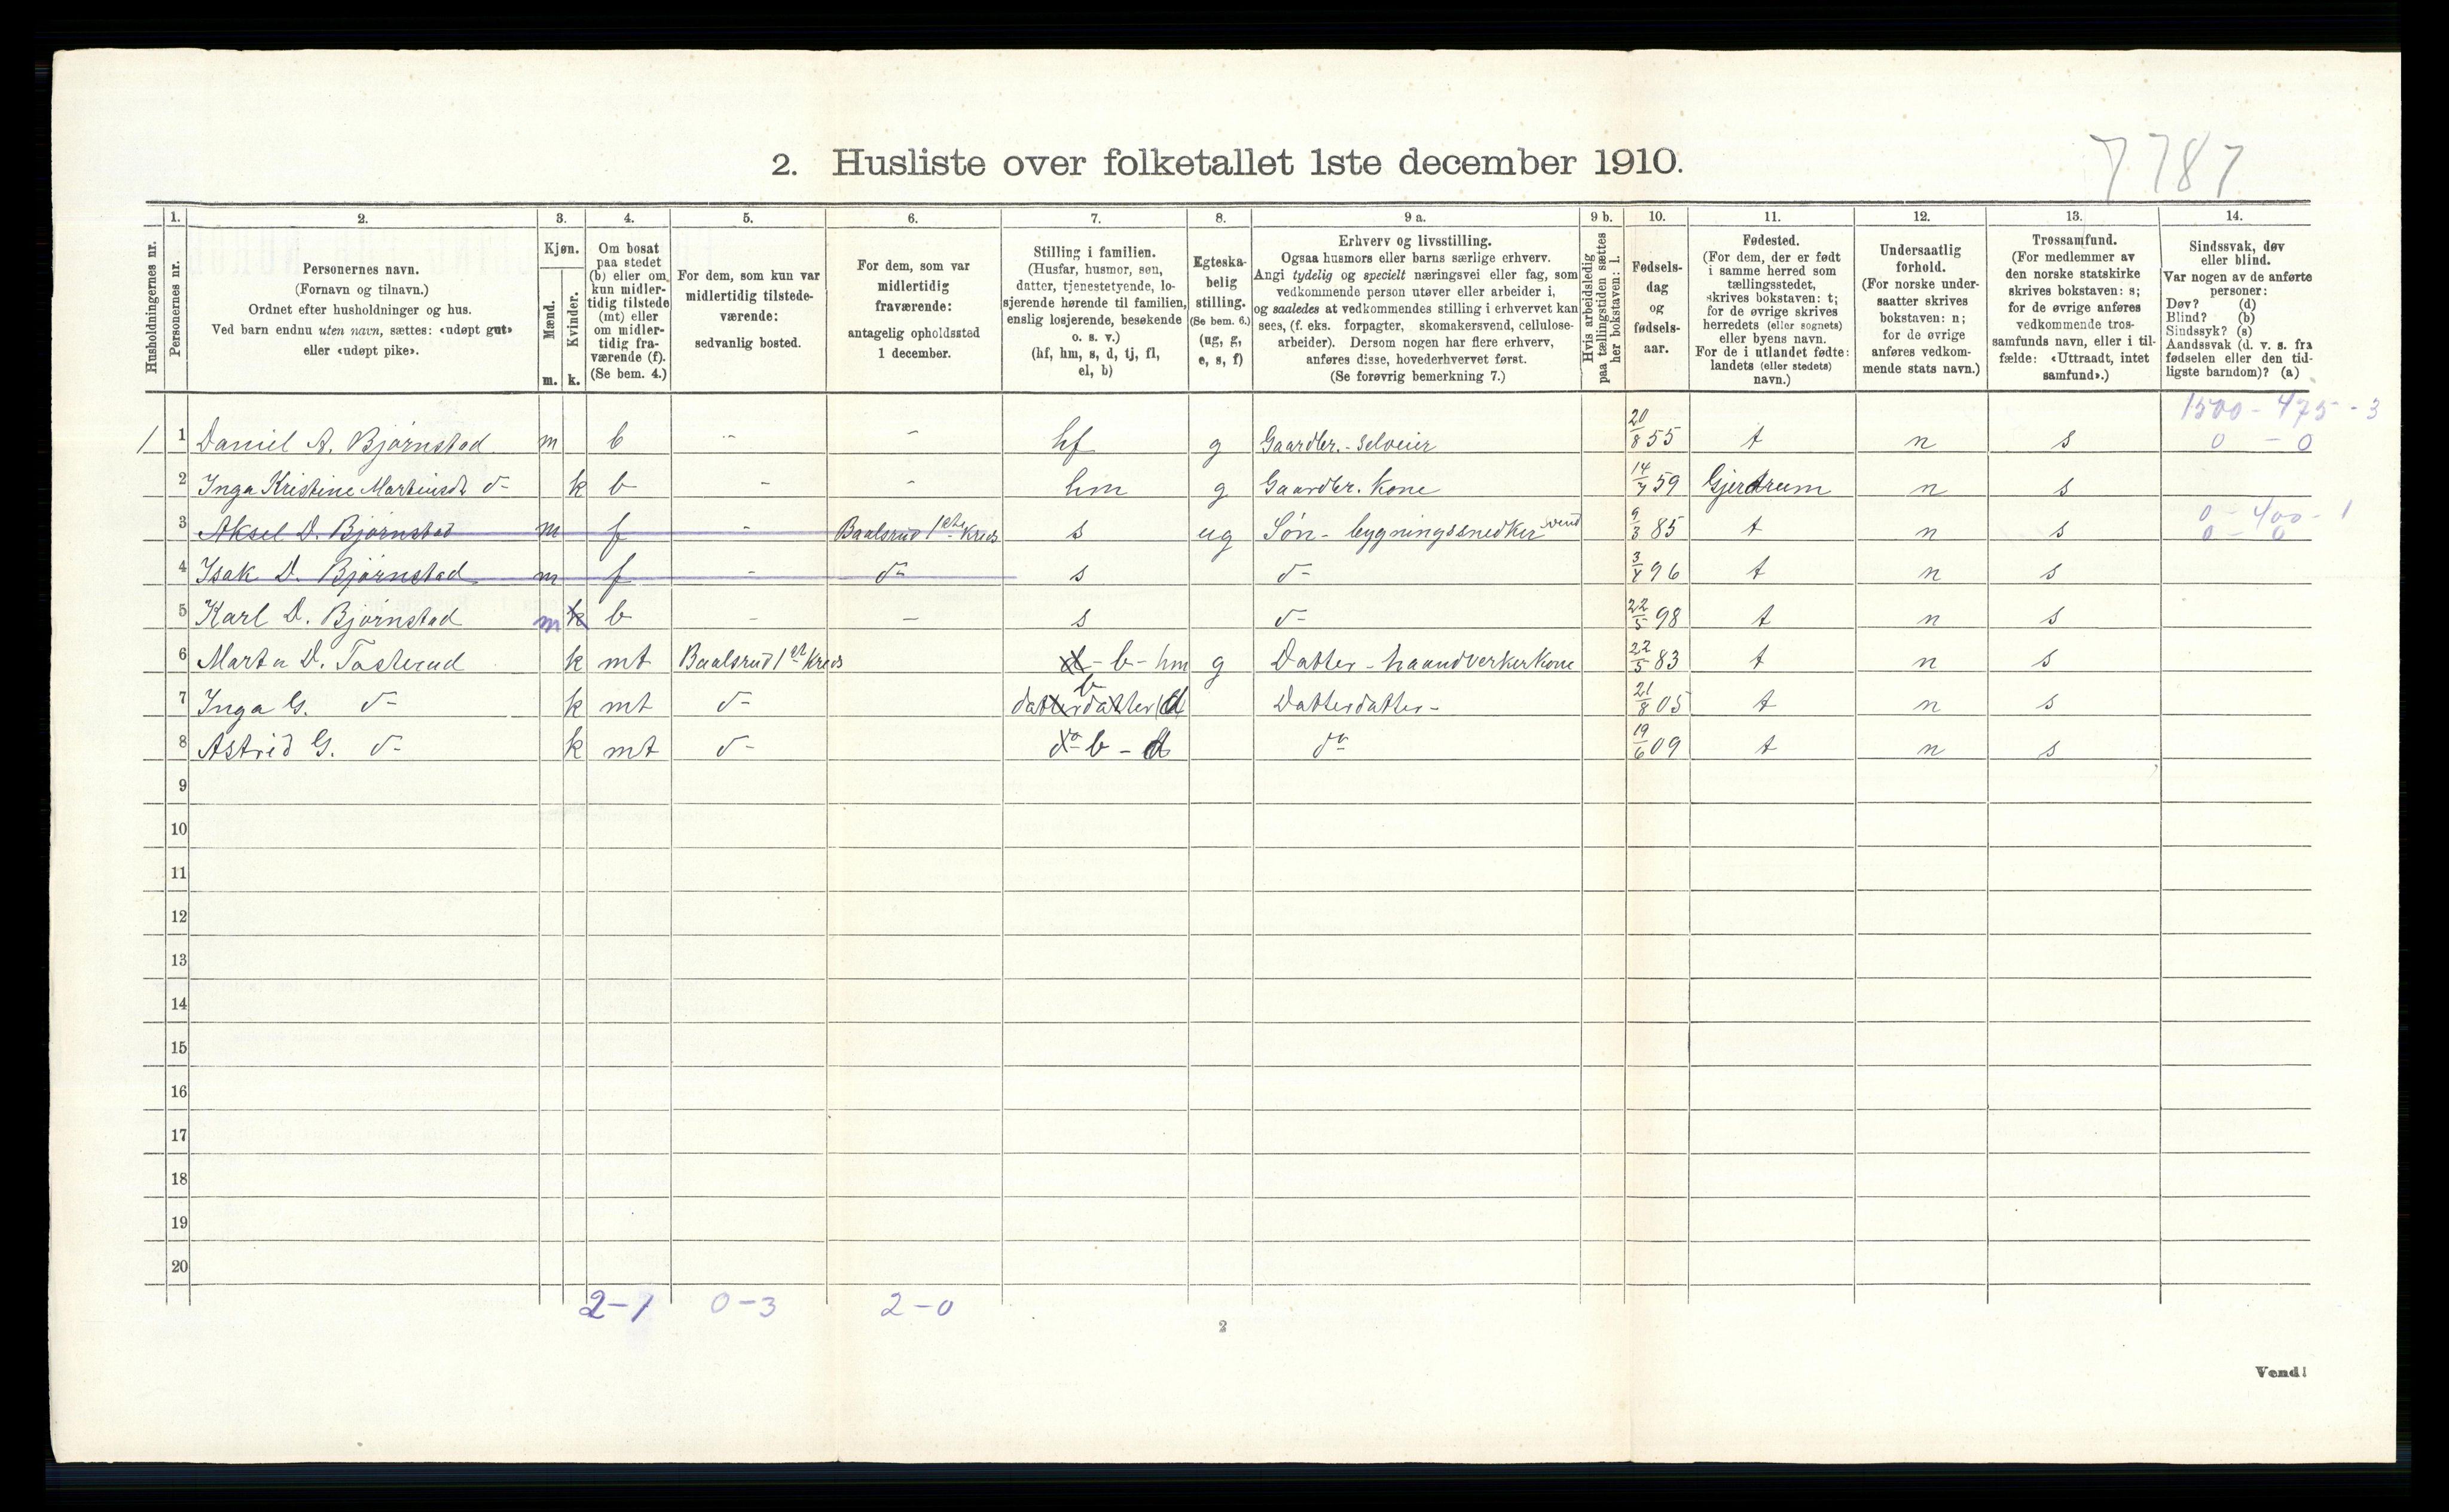 2. Husliste over folketallet 1ste december 1910.
7787
Husholdningernes nr.
1.
Personernes nr.
2.
Personernes navn.
(Fornavn og tilnavn.)
Ordnet efter husholdninger og hus.
Ved barn endnu uten navn, sættes: «udøpt gut»
eller «udøpt pike».
3.
Kjøn.
Mænd.
Kvinder.
m. k.
4.
Om bosat
paa stedet
(b) eller om
kun midler-
tidig tilstede
(mt) eller
om midler-
tidig fra-
værende (f).
(Se bem. 4.)
5.
For dem, som kun var
midlertidig tilstede-
værende:
sedvanlig bosted.
6.
For dem, som var
midlertidig
fraværende:
antagelig opholdssted
1 december.
7.
Stilling i familien.
(Husfar, husmor, søn,
datter, tjenestetyende, lo-
sjerende hørende til familien,
enslig losjerende, besøkende
o. s. v.)
(hf, hm, s, d, tj, fl,
el, b)
8.
Egteska-
belig
stilling.
(Se bem. 6.)
(ug, g,
e, s, f)
9 a.
Erhverv og livsstilling.
Ogsaa husmors eller barns særlige erhverv.
Angi tydelig og specielt næringsvei eller fag, som
vedkommende person utøver eller arbeider i,
og saaledes at vedkommendes stilling i erhvervet kan
sees, (f. eks. forpagter, skomakersvend, cellulose-
arbeider). Dersom nogen har flere erhverv,
anføres disse, hovederhvervet først.
(Se forøvrig bemerkning 7.)
9 b.
Hvis arbeidsledig
paa tællingstiden sættes
her bokstaven: l.
10.
Fødsels-
dag
og
fødsels-
aar.
11.
Fødested.
(For dem, der er født
i samme herred som
tællingsstedet,
skrives bokstaven: t;
for de øvrige skrives
herredets (eller sognets)
eller byens navn.
For de i utlandet fødte:
landets (eller stedets)
navn.)
12.
Undersaatlig
forhold.
(For norske under-
saatter skrives
bokstaven: n;
for de øvrige
anføres vedkom-
mende stats navn.)
13.
Trossamfund.
(For medlemmer av
den norske statskirke
skrives bokstaven: s;
for de øvrige anføres
vedkommende tros-
samfunds navn, eller i til-
fælde: «Uttraadt, intet
samfund».)
14.
Sindssvak, døv
eller blind.
Var nogen av de anførte
personer:
Døv? (d)
Blind? (b)
Sindssyk? (s)
Aandssvak (d. v. s. fra
fødselen eller den tid-
ligste barndom)? (a)
1500 - 475 - 3
1 1 Daniel A. Bjørnstad m b - - hf g Gaardbr. - Selveier 20/8 55 t n s 0 - 0
2 Inga Kristine Martinsdt do k b - - hm g Gaardbr. Kone 14/7 59 Gjerdrum n s
0 - 400 - 1
3 Aksel D. Bjørnstad m f - Baalsrud 1ste Kreds s ug Søn - bygningssnedkersvend 9/3 85 t n s 0 - 0
4 Isak D. Bjørnstad m f - do s do 3/4 96 t n s
5 Karl D. Bjørnstad m k b - - s do 22/5 98 t n s
6 Marta D. Tasterud k mt Baalsrud 1ste Kreds d - b - hm g Datter - haandverkerkone 22/5 83 t n s
7 Inga G. do k mt do datterdatter b d Datterdatter - 21/8 05 t n s
8 Astrid G. do k mt do do b - d do 19/6 09 t n s
9
10
11
12
13
14
15
16
17
18
19
20
2-1 0-3 2-0
2
Vend!